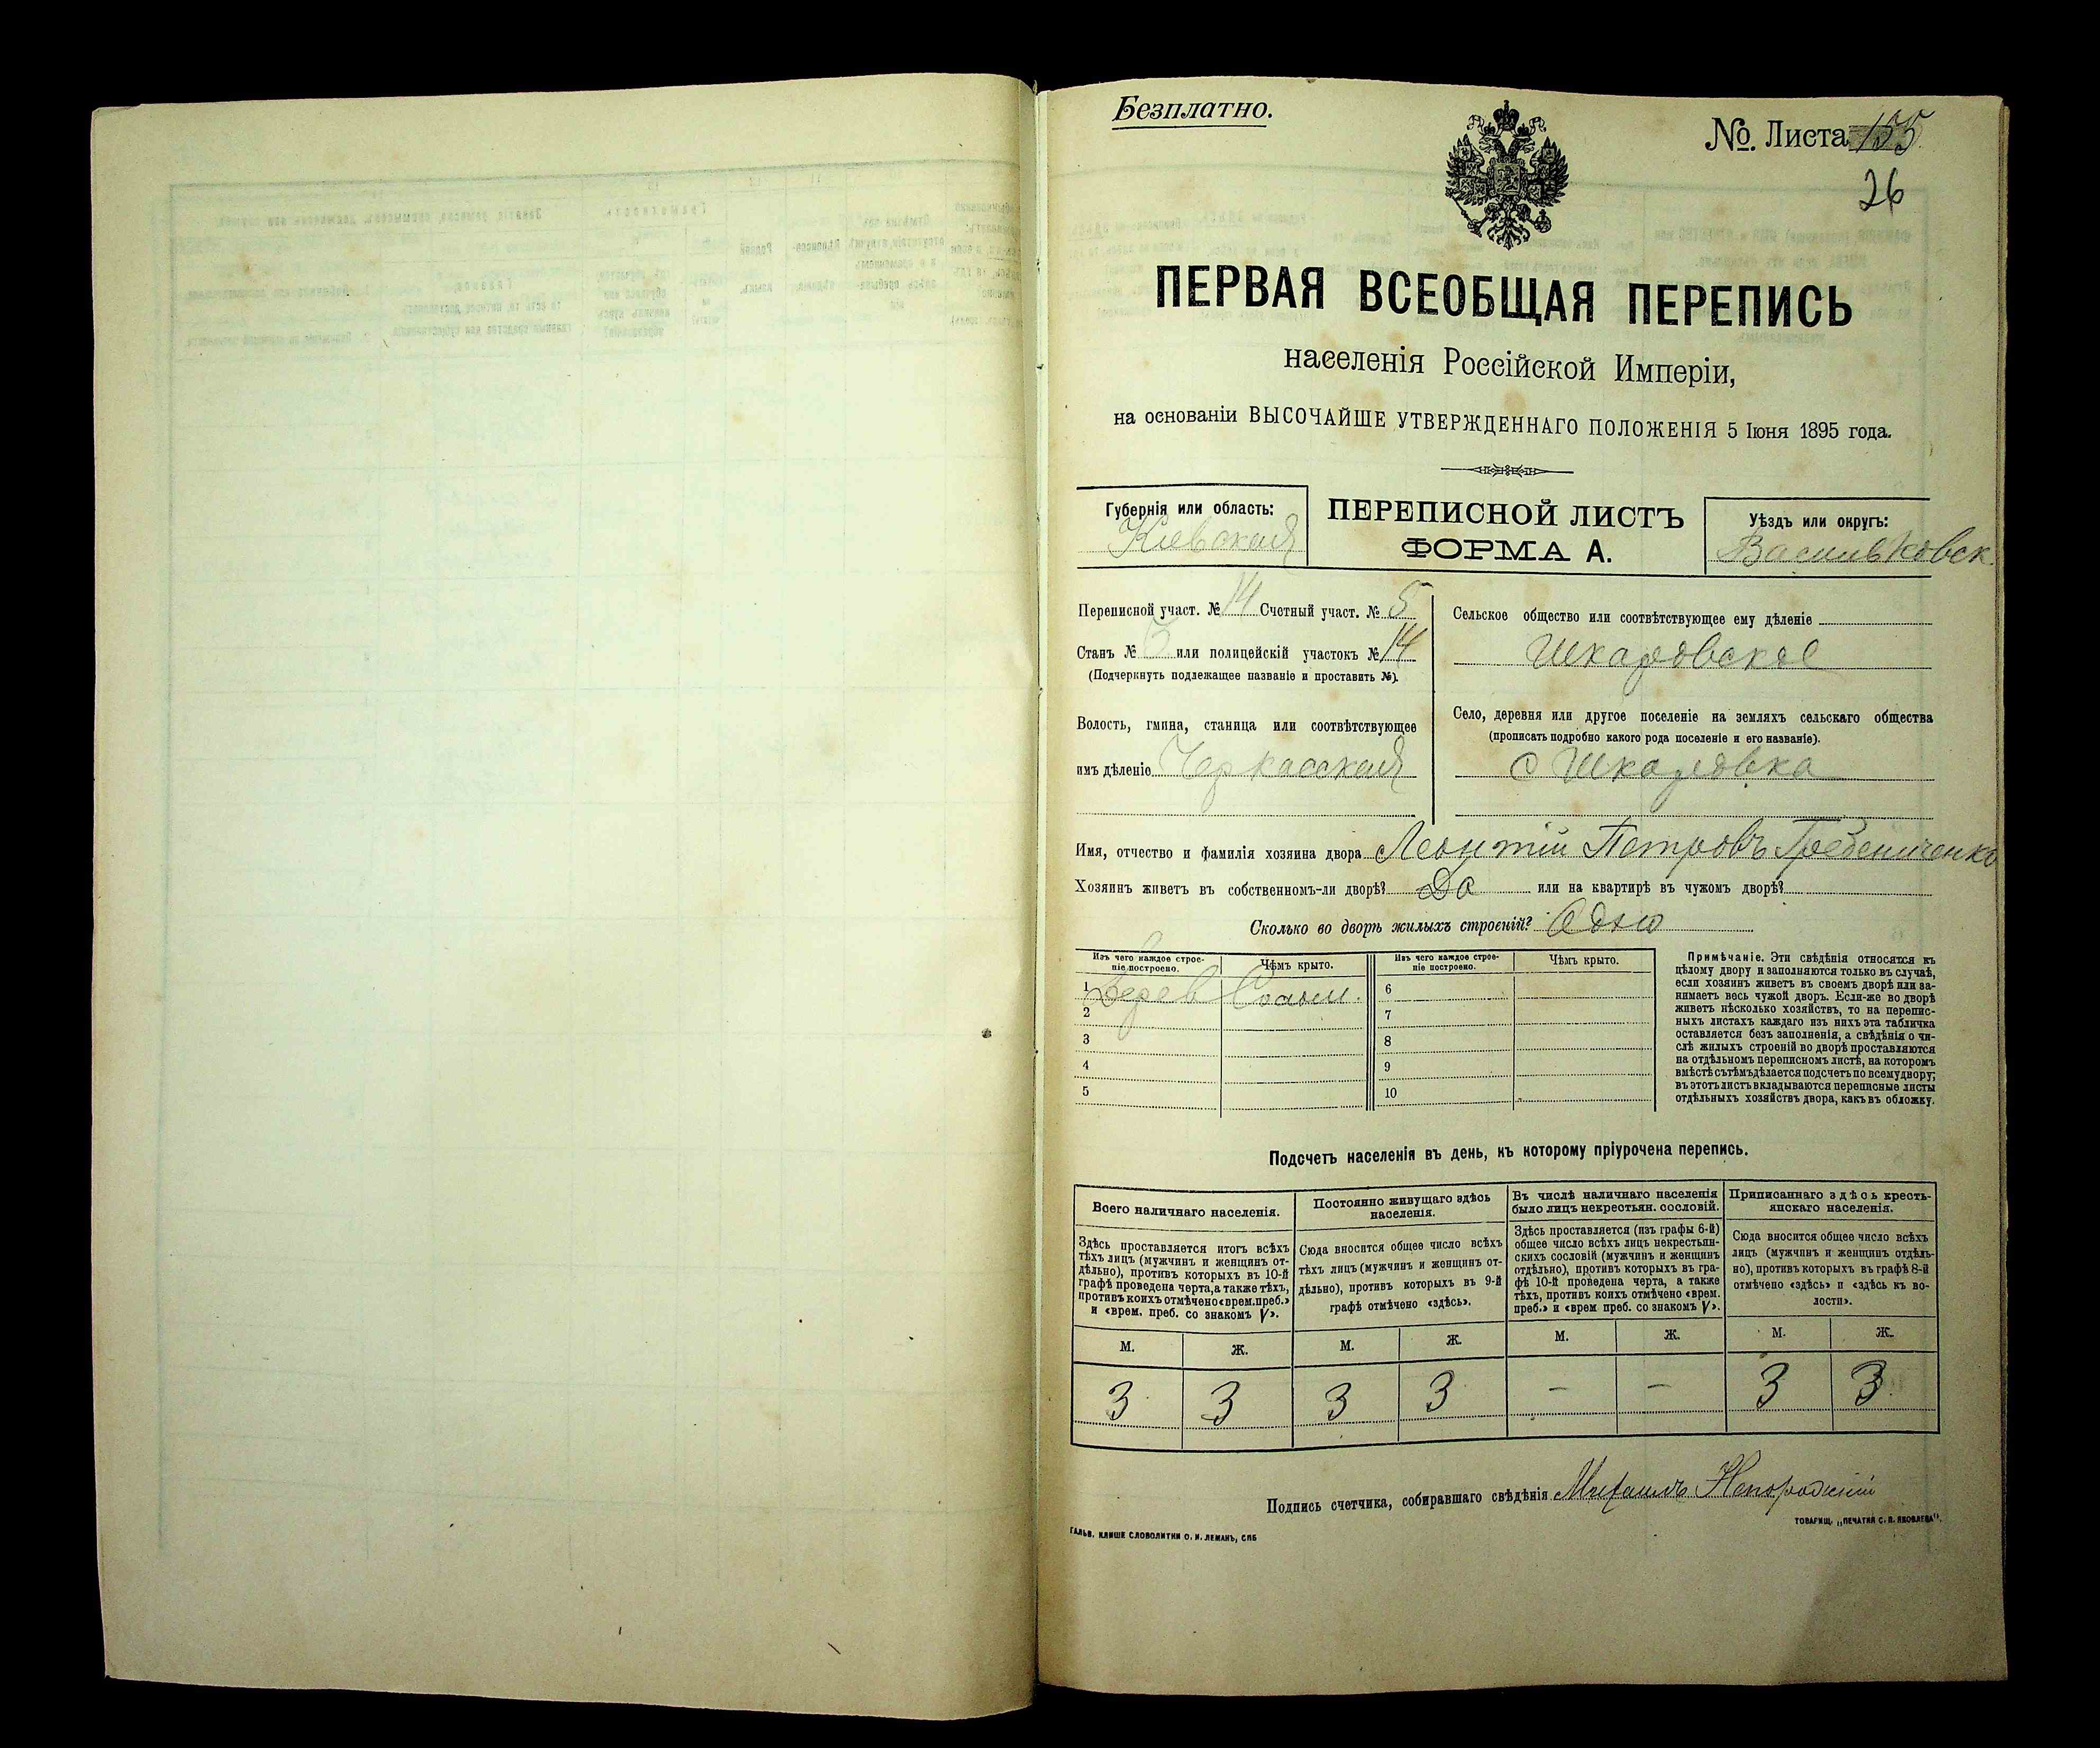 Безплатно.
№. Листа 155
26
ПЕРВАЯ ВСЕОБЩАЯ ПЕРЕПИСЬ
населенія Россійской Имперіи,
на основаніи ВЫСОЧАЙШЕ УТВЕРЖДЕННАГО ПОЛОЖЕНІЯ 5 Іюня 1895 года.
Губернія или область:
Кіевская
ПЕРЕПИСНОЙ ЛИСТЪ
ФОРМА А.
Уѣздъ или округъ:
Васильковск.
Переписной участ. № 14 Счетный участ. № 5
Станъ № или полицейскій участокъ № 14
(Подчеркнуть подлежащее названіе и проставить №).
Волость, гмина, станица или соотвѣтствующее
имъ дѣленіе Черкасская
Сельское общество или соотвѣтствующее ему дѣленіе
Шкаровское
Село, деревня или другое поселеніе на земляхъ сельскаго общества
(прописать подробно какого рода поселеніе и его названіе).
с Шкаровка
Имя, отчество и фамилія хозяина двора Леонтій Петровъ Гребениченко
Хозяинъ живетъ въ собственномъ-ли дворѣ? Да или на квартирѣ въ чужомъ дворѣ?
Сколько во дворѣ жилыхъ строеній? Одно
Изъ чего каждое строе-
ніе построено.
Чѣмъ крыто.
Изъ чего каждое строе-
ніе построено.
Чѣмъ крыто.
1 Дерев Солом. 6
2 7
3 8
4 9
5 10
Примѣчаніе. Эти свѣдѣнія относятся къ
цѣлому двору и заполняются только въ случаѣ,
если хозяинъ живетъ въ своемъ дворѣ или за-
нимаетъ весь чужой дворъ. Если-же во дворѣ
живетъ нѣсколько хозяйствъ, то на перепис-
ныхъ листахъ каждаго изъ нихъ эта табличка
оставляется безъ заполненія, а свѣдѣнія о чи-
слѣ жилыхъ строеній во дворѣ проставляются
на отдѣльномъ переписномъ листѣ, на которомъ
вмѣстѣ съ тѣмъ дѣлается подсчетъ по всему двору;
въ этотъ листъ вкладываются переписные листы
отдѣльныхъ хозяйствъ двора, какъ въ обложку.
Подсчетъ населенія въ день, къ которому пріурочена перепись.
Всего наличнаго населенія.
Здѣсь проставляется итогъ всѣхъ
тѣхъ лицъ (мужчинъ и женщинъ от-
дѣльно), противъ которыхъ въ 10-й
графѣ проведена черта, а также тѣхъ,
противъ коихъ отмѣчено «врем. преб.»
и «врем. преб. со знакомъ V».
Постоянно живущаго здѣсь
населенія.
Сюда вносится общее число всѣхъ
тѣхъ лицъ (мужчинъ и женщинъ от-
дѣльно), противъ которыхъ въ 9-й
графѣ отмѣчено «здѣсь».
Въ числѣ наличнаго населенія
было лицъ некрестьян. сословій.
Здѣсь проставляется (изъ графы 6-й)
общее число всѣхъ лицъ некрестьян-
скихъ сословій (мужчинъ и женщинъ
отдѣльно), противъ которыхъ въ гра-
фѣ 10-й проведена черта, а также
тѣхъ, противъ коихъ отмѣчено «врем.
преб.» и «врем преб. со знакомъ V».
Приписаннаго здѣсь кресть-
янскаго населенія.
Сюда вносится общее число всѣхъ
лицъ (мужчинъ и женщинъ отдѣль-
но), противъ которыхъ въ графѣ 8-й
отмѣчено «здѣсь» и «здѣсь къ во-
лости».
М. Ж. М. Ж. М. Ж. М. Ж.
3 3 3 3 – – 3 3
Подпись счетчика, собиравшаго свѣдѣнія Михаилъ
ГАЛЬВ. КЛИШЕ СЛОВОЛИТНИ О. И. ЛЕМАНЪ, СПБ
ТОВАРИЩ. „ПЕЧАТНЯ С. П. ЯКОВЛЕВА".